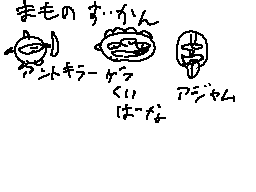 まもの ずかん
アントキラー
ゲラ
くい
ばーな
アジャム